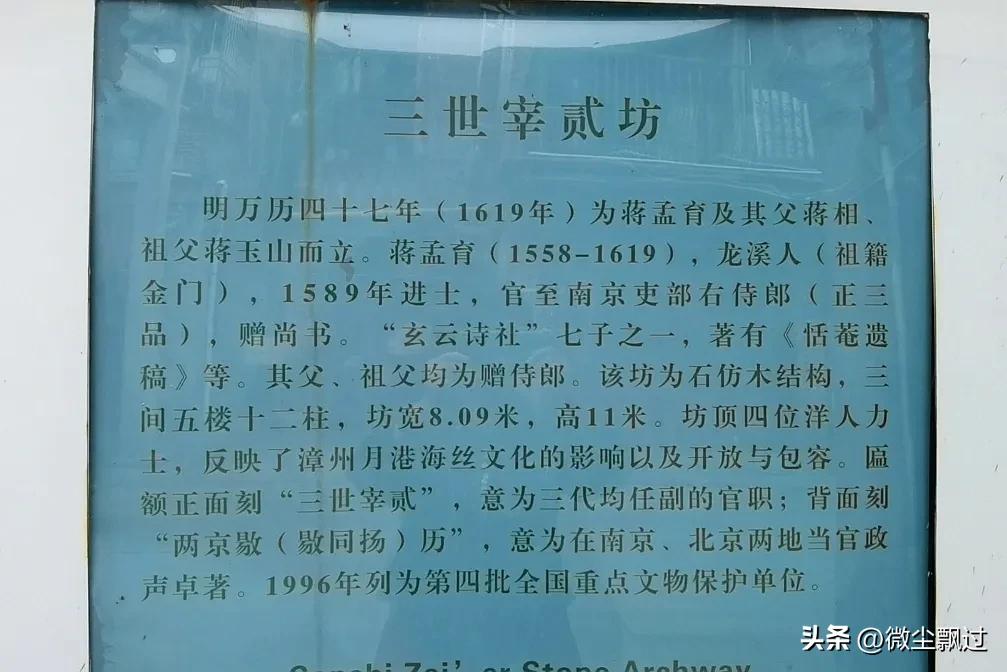 三世宰贰坊
明万历四十七年（1619年）为蒋孟育及其父蒋相、
祖父蒋玉山而立。蒋孟育（1558-1619），龙溪人（祖籍
金门），1589年进士，官至南京吏部右侍郎（正三
品），赠尚书。“玄云诗社”七子之一，著有《恬菴遗
稿》等。其父、祖父均为赠侍郎。该坊为石仿木结构，三
间五楼十二柱，坊宽8.09米，高11米。坊顶四位洋人力
士，反映了漳州月港海丝文化的影响以及开放与包容。匾
额正面刻“三世宰贰”，意为三代均任副的官职；背面刻
“两京敭（敭同扬）历”，意为在南京、北京两地当官政
声卓著。1996年列为第四批全国重点文物保护单位。
Zai'er Stone Archway
头条 @微尘飘过